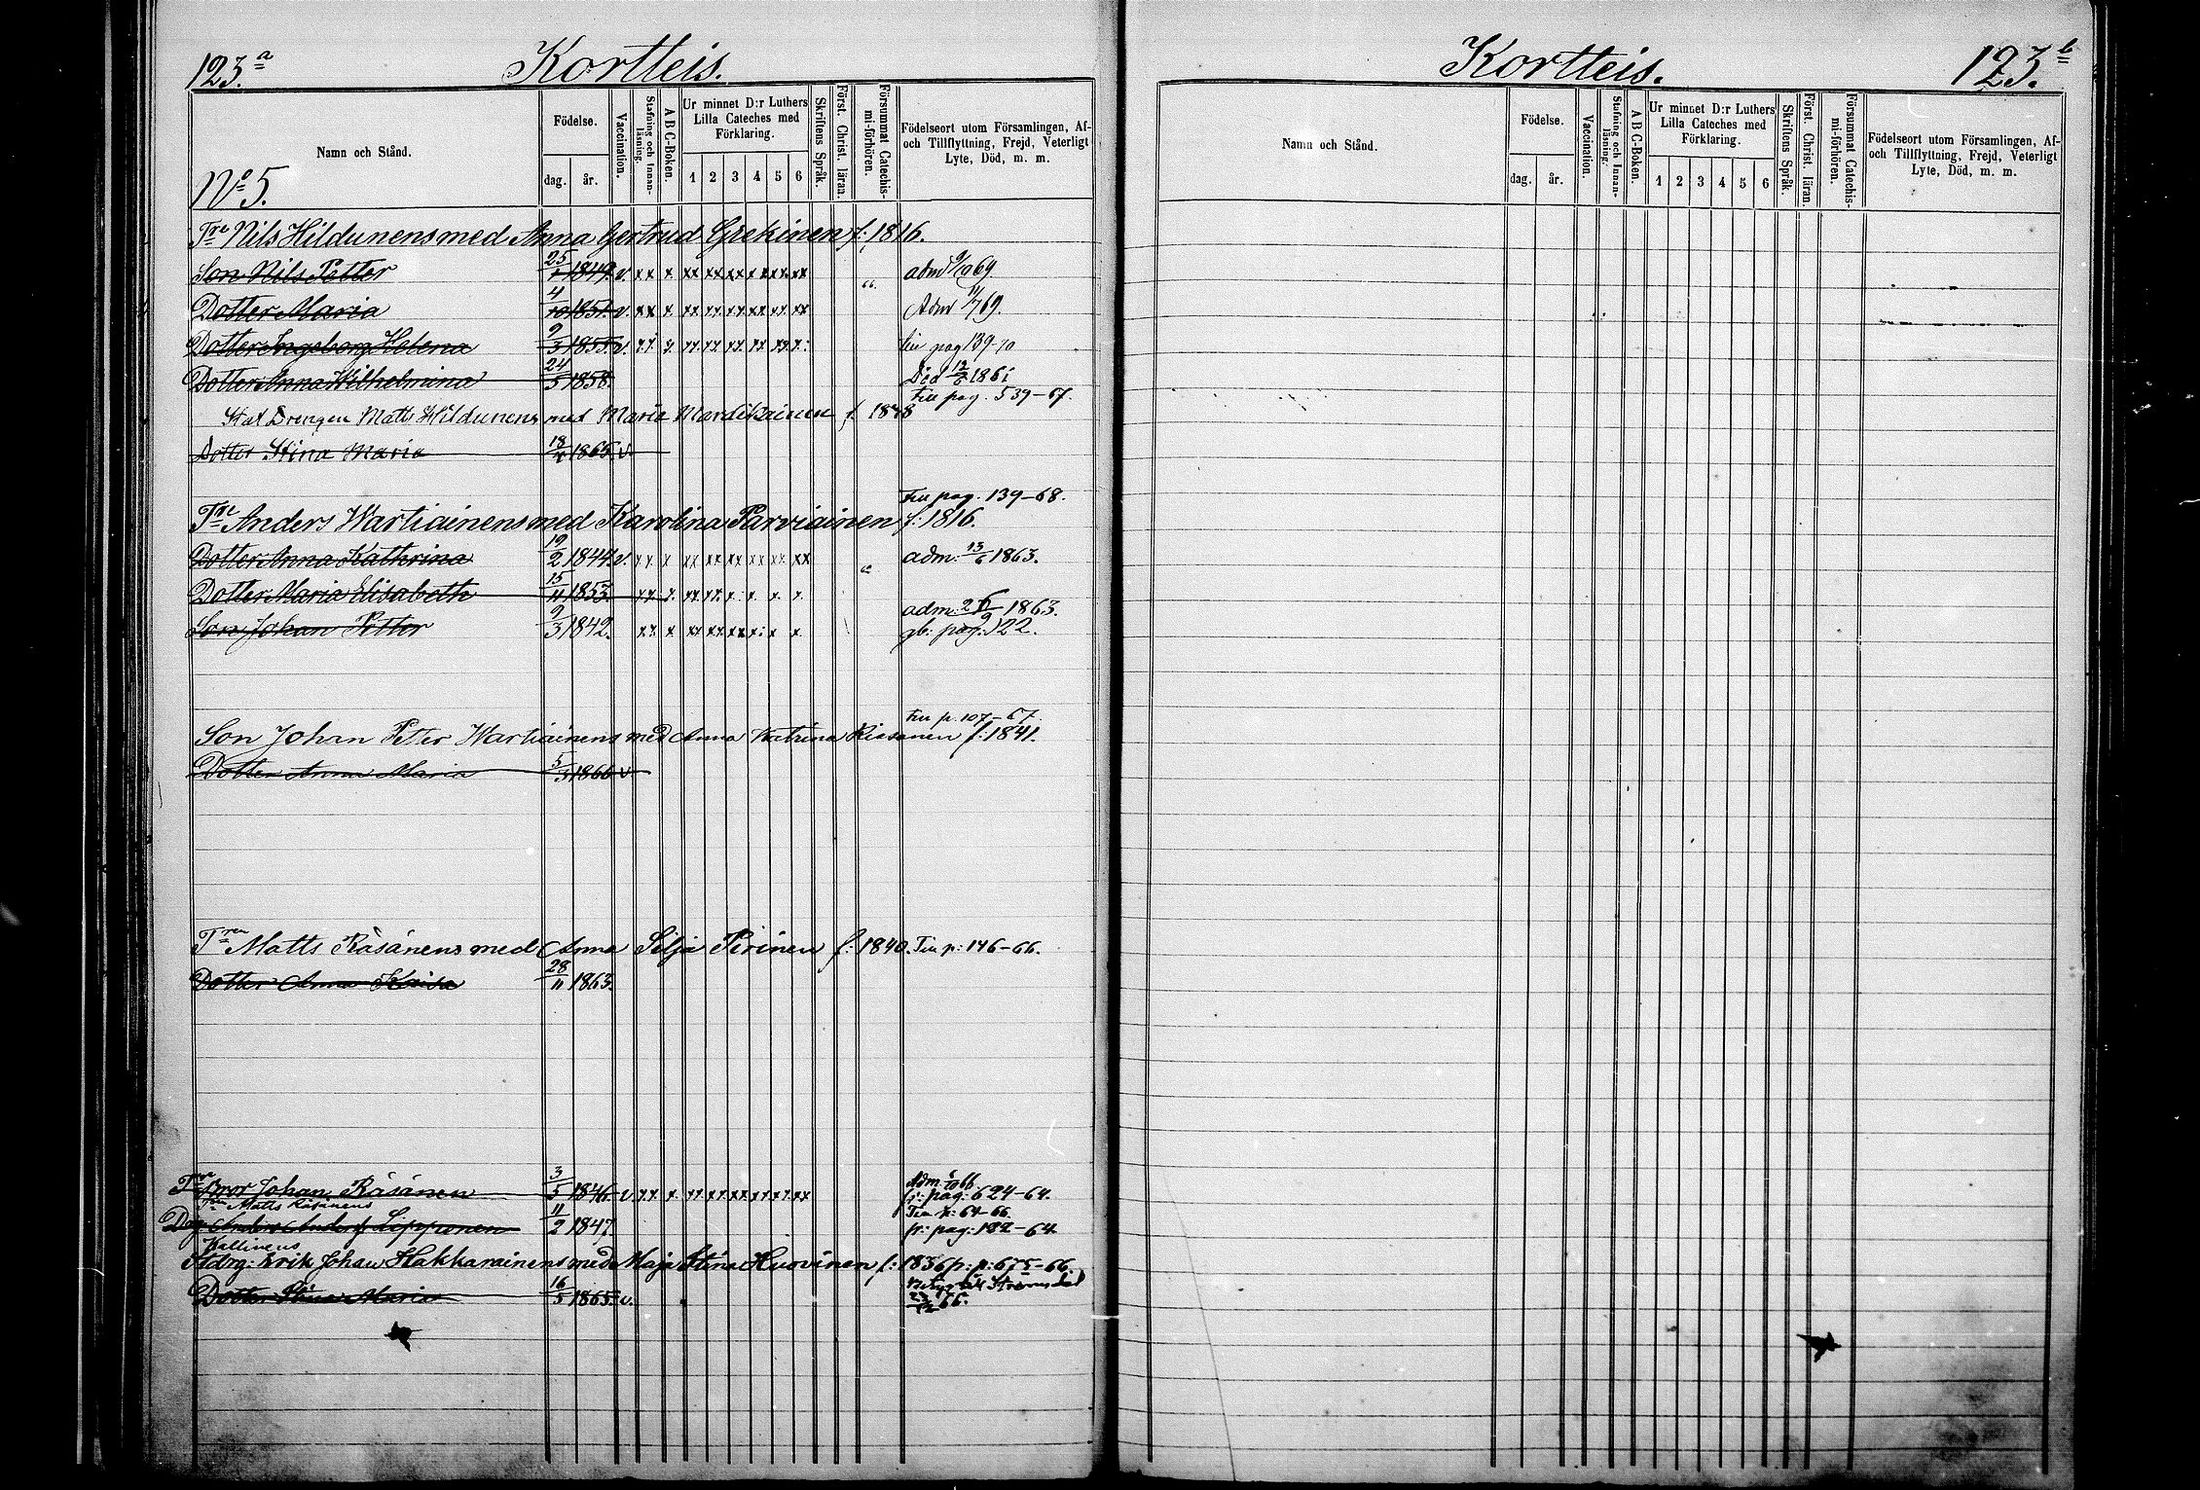 123.a Kortteis.
Namn och Stånd.
Födelse.
dag. år.
Vaccination.
Stafning och Innan-läsning.
A B C-Boken.
Ur minnet D:r Luthers
Lilla Cateches med
Förklaring.
1 2 3 4 5 6
Skriftens Språk.
Först. Christ. läran.
Försummat Catechis-mi-förhören.
Födelseort utom Församlingen, Af-
och Tillflyttning, Frejd, Veterligt
Lyte, Död, m. m.
No 5.
Tre Nils Hildunens med Anna Gertrud f: 1816.
Son Nils Petter 25 1849. v. xx x xx xx xx x xx xx 66. adm 9/10 69
Dotter Maria 4/10 1851. v. xx x xx xx xx xx xx xx Adm 11/7 69.
Dotter Ingeborg Helena 9/3 1855. v. xx x. xx xx xx xx xx x. pag 139-70
Dotter Anna Wilhelmina 24/5 1858. Död 1861
Till pag. 539-67.
Drengen Matts Hildunens med Maria f.
Dotter Stina Maria 18 1865 v.
Till pag. 139-68.
Tre Anders Wartiainens med Karolina Parviainen f: 1816.
Dotter Anna Kathrina 19/2 1844. v. xx x xx xx xx xx xx xx adm: 13/6 1863.
Dotter Maria Elisabeth 15/11 1853. xx x. xx xx. x. x. x x.
adm: 1863.
Son Johan Petter 9/3 1842. xx x xx xx xx x: x x. pag: 122.
Till p. 107-67.
Son Johan Petter Wartiainens med Anna Katrina f: 1841.
Dotter Anna Maria 5/3 1866 v
Tre Matts Räsänens med Anna Silja Pirinen f: 1840. Till p: 146-66.
Dotter Anna Kaisa 28/11 1863.
Tre Bror Johan Räsänen 3/5 1846. v. xx x. xx xx xx xx xx xx Adm 66
pag: 624-64.
Tre Matts Räsänens Till p: 64-66.
Drg Anders Lipponen 11/2 1847. fr: pag: 182-64.
Kallinens
Stdrg: Erik Johan Hakkarainens med Maja Stina Huovinen f: 1836 fr: p: 675-66.
Strömsdal
Dotter Stina Maria 16/5 1865. v. 66.
Kortteis. 123.b
Namn och Stånd.
Födelse.
dag. år.
Vaccination.
Stafning och Innan-läsning.
A B C-Boken.
Ur minnet D:r Luthers
Lilla Cateches med
Förklaring.
1 2 3 4 5 6
Skriftens Språk.
Först. Christ. läran.
Försummat Catechis-mi-förhören.
Födelseort utom Församlingen, Af-
och Tillflyttning, Frejd, Veterligt
Lyte, Död, m. m.